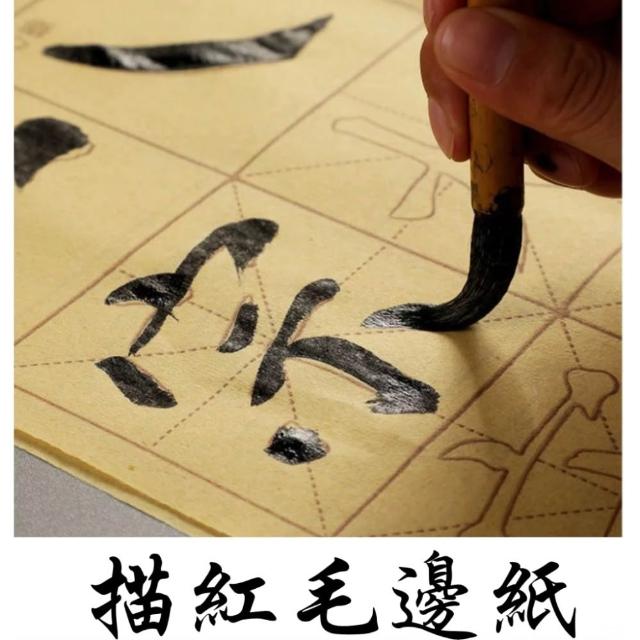 描紅毛邊紙